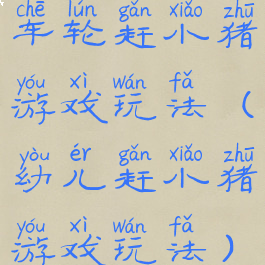 chē lún gǎn xiǎo zhū
车轮赶小猪
yóu xì wán fǎ
游戏玩法（
yòu ér gǎn xiǎo zhū
幼儿赶小猪
yóu xì wán fǎ
游戏玩法）